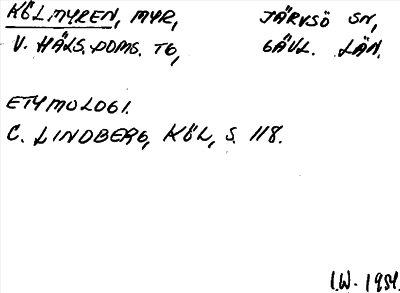 KÖLMYREN, MYR, JÄRVSÖ SN,
V. HÄLS. DOMS. TG, GÄVL. LÄN.
ETYMOLOGI.
C. LINDBERG, KÖL, S. 118.
I.W. 1954.